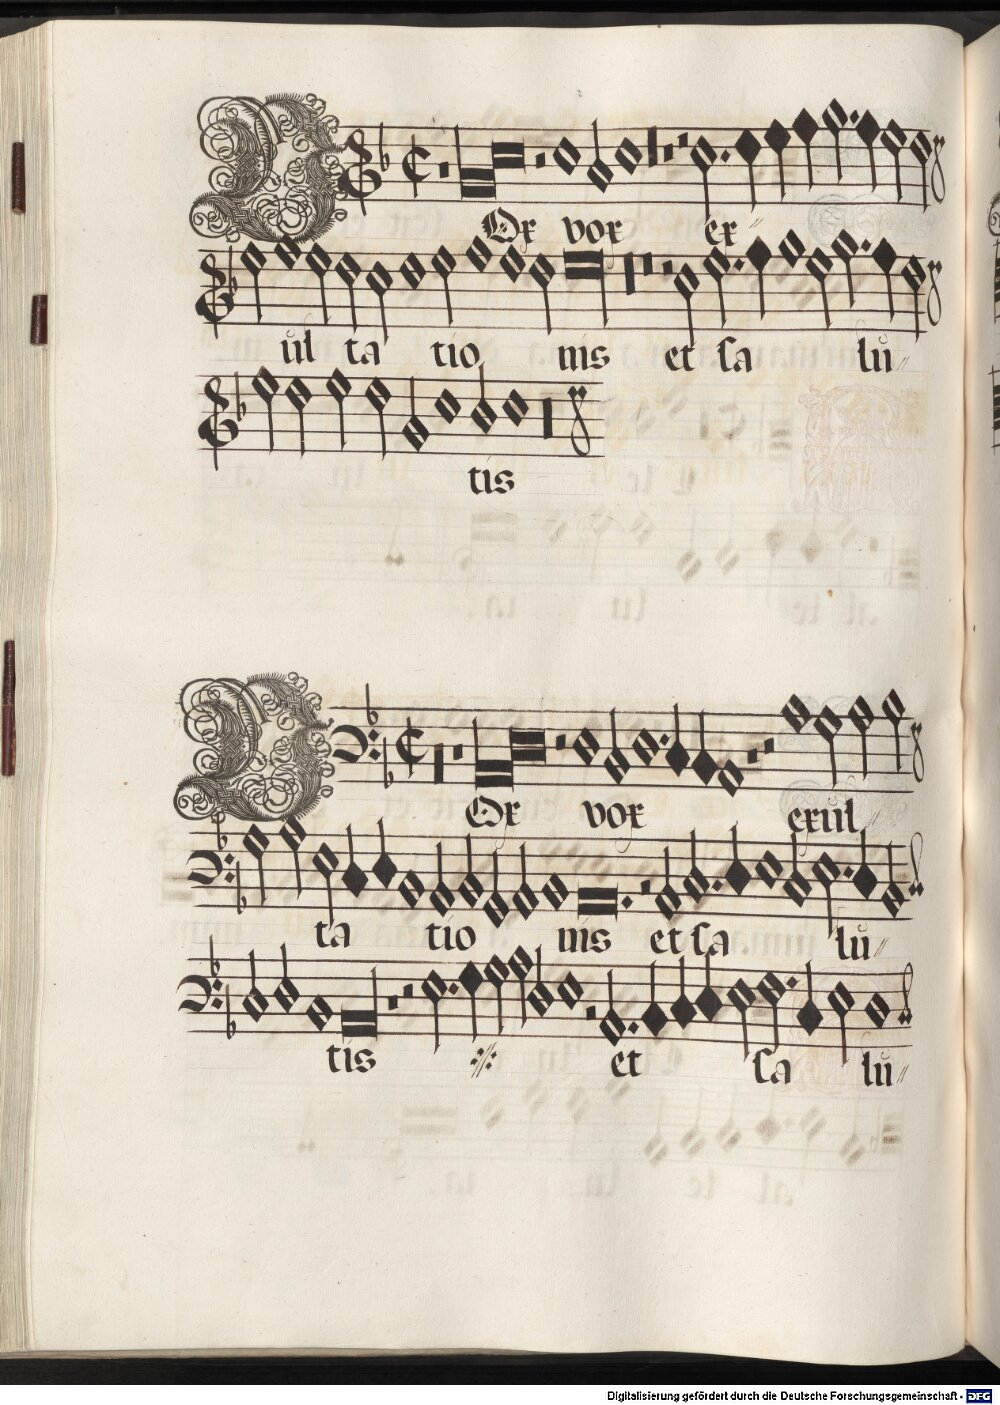 Vox vox ex
ul ta tio nis et sa lu
tis
Vox vox exul
ta tio nis et sa lu
tis et sa lu
Digitalisierung gefördert durch die Deutsche Forschungsgemeinschaft - DFG